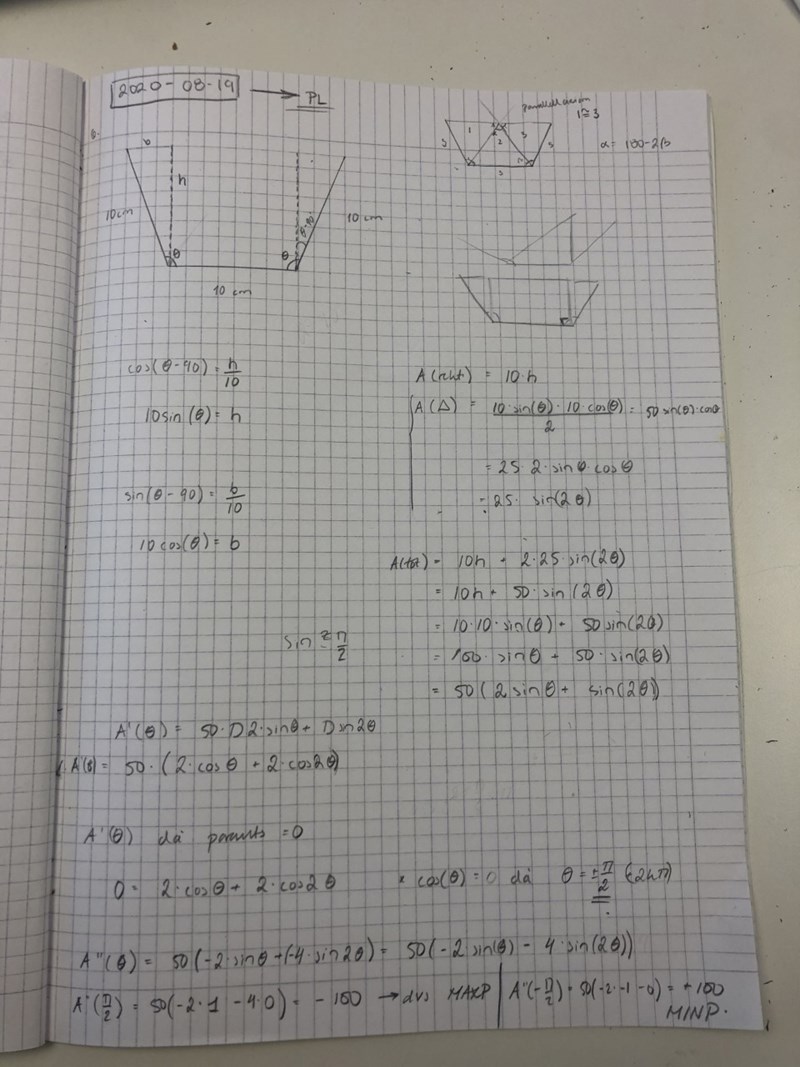 2020-08-19 → PL
1≅3
α = 180-2β
1
2
3
b
h
10cm
θ
θ
10 cm
10 cm
cos(θ-90) = h/10
10sin(θ) = h
sin(θ-90) = b/10
10cos(θ) = b
A(rekt) = 10·h
A(Δ) = 10·sin(θ)·10·cos(θ)/2 = 50 sin(θ)·cosθ
= 25·2·sinθ·cosθ
= 25·sin(2θ)
A(tot) = 10h + 2·25·sin(2θ)
= 10h + 50·sin(2θ)
= 10·10·sin(θ) + 50sin(2θ)
= 100·sinθ + 50·sin(2θ)
= 50(2sinθ + sin(2θ))
sin ± π/2
A'(θ) = 50·D2·sinθ + Dsin2θ
A'(θ) = 50·(2·cosθ + 2·cos2θ)
A'(θ) då =0
0 = 2·cosθ + 2·cos2θ
* cos(θ) = 0 då θ = ±π/2 (+2nπ)
A''(θ) = 50(-2·sinθ+(-4·sin2θ) = 50(-2·sin(θ) - 4·sin(2θ))
A''(π/2) = 50(-2·1 -4·0) = -100 → dvs MAXP | A''(-π/2) = 50(-2·-1-0) = +100
MINP.